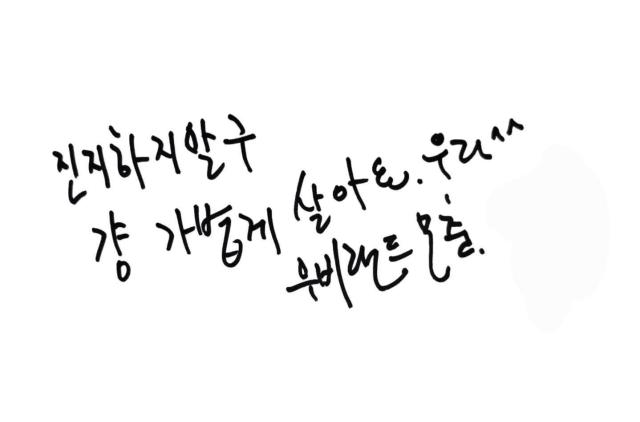 진지하지말구
걍 가볍게 살아요. 우리^^
우비랜드 몬줄.